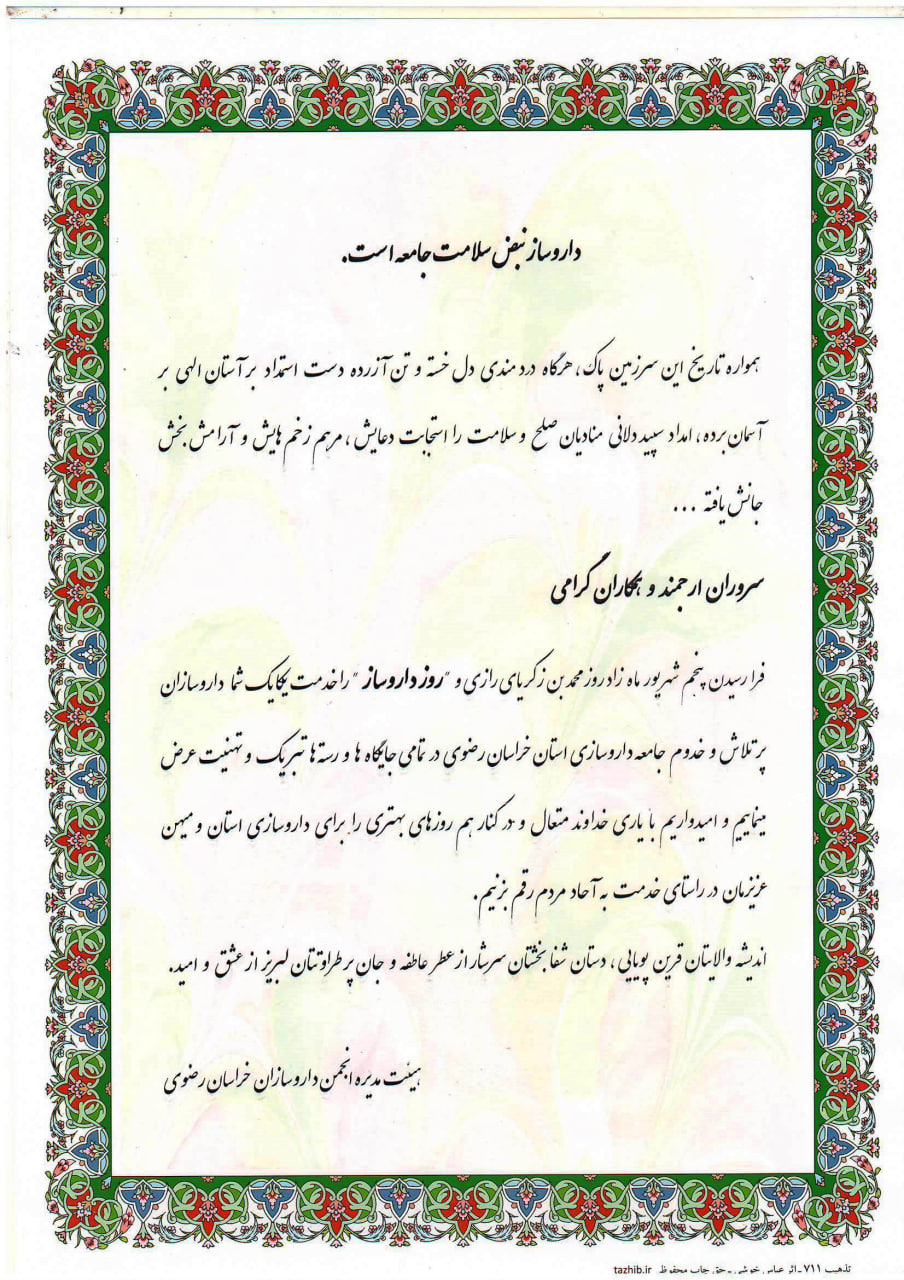 داروساز نبض سلامت جامعه است.
همواره تاریخ این سرزمین پاک، هرگاه دردمندی دل خسته و تن آزرده دست استمداد بر آستان الهی بر
آسمان برده، امداد سپید دلانی منادیان صلح و سلامت را استجابت دعایش، مرهم زخم هایش و آرامش بخش
جانش یافته ...
سروران ارجمند و همکاران گرامی
فرا رسیدن پنجم شهریور ماه زاد روز محمد بن زکریای رازی و "روز داروساز" را خدمت یکایک شما داروسازان
پر تلاش و خدوم جامعه داروسازی استان خراسان رضوی در تمامی جایگاه ها و رسته ها تبریک و تهنیت عرض
مینماییم و امیدواریم با یاری خداوند متعال و در کنار هم روزهای بهتری را برای داروسازی استان و میهن
عزیزمان در راستای خدمت به آحاد مردم رقم بزنیم.
اندیشه والایتان قرین پویایی، دستان شفا بخشتان سرشار از عطر عاطفه و جان پر طراوتتان لبریز از عشق و امید.
هیئت مدیره انجمن داروسازان خراسان رضوی
تذهیب ۷۱۱ - اثر عباس خوشی - حق چاپ محفوظ tazhib.ir